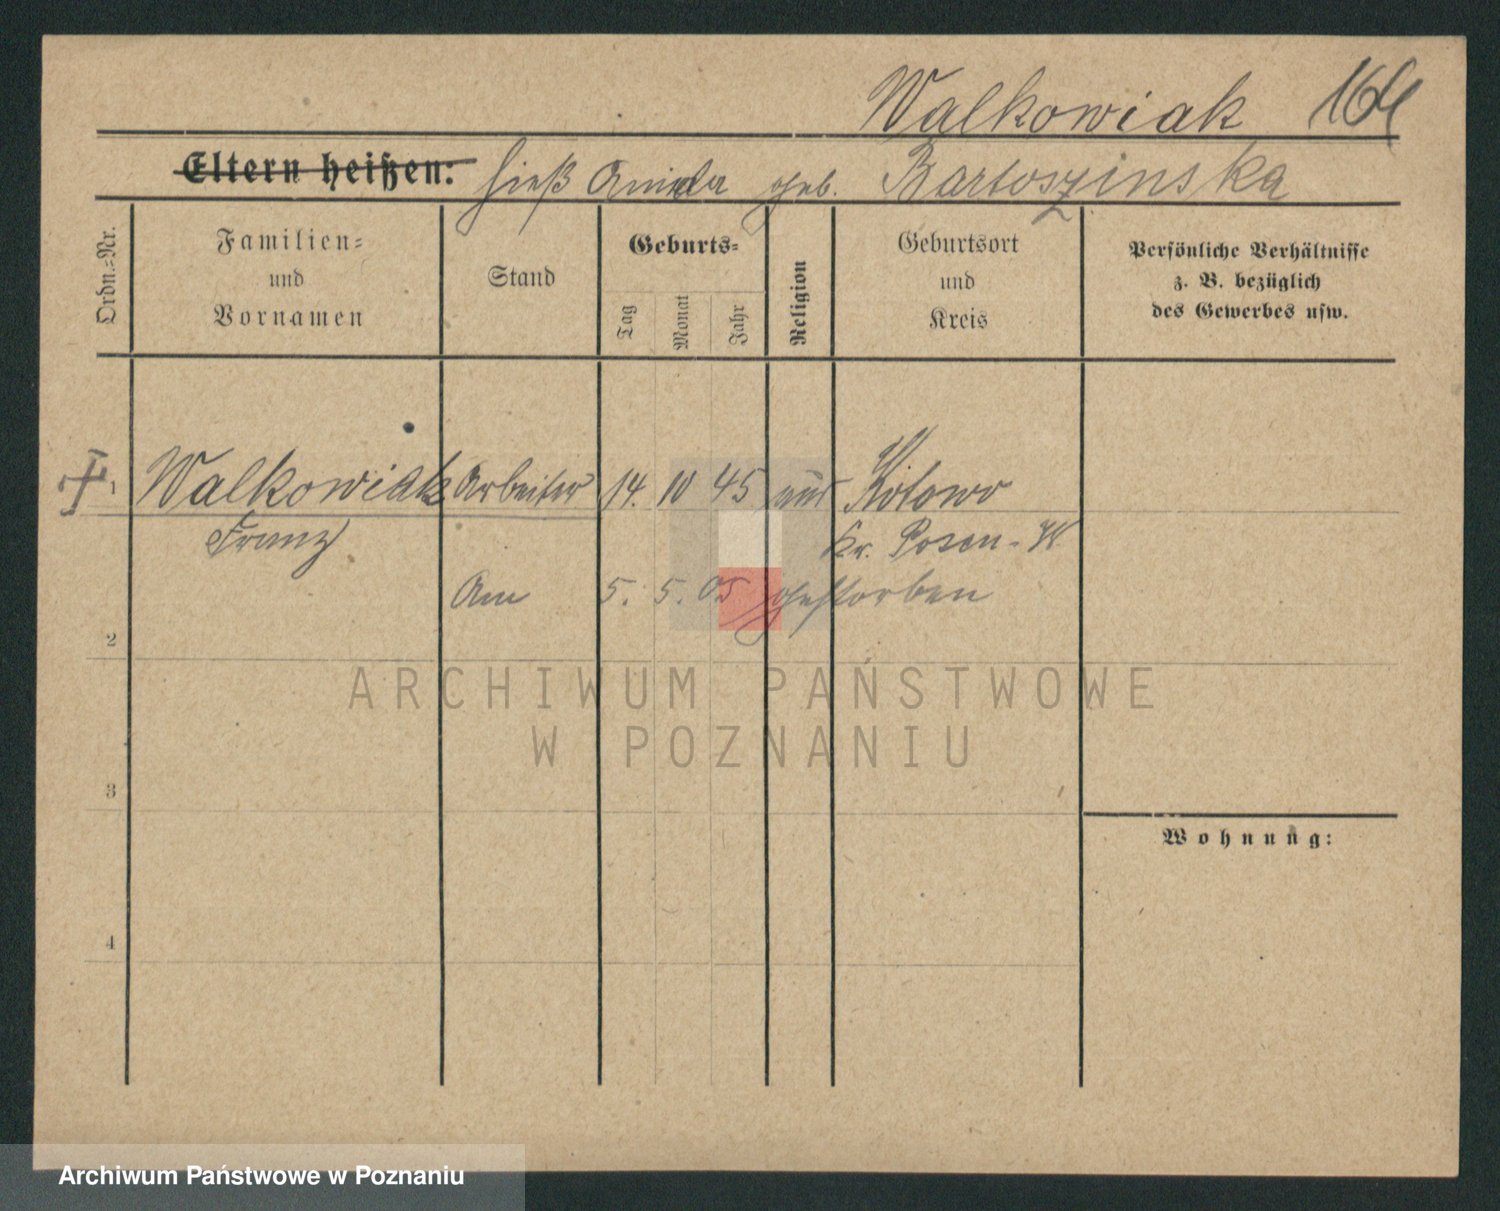 Walkowiak 16
Eltern heißen: hieß geb. Bartoszinska
Ordn.-Nr.
Familien-
und
Vornamen
Stand
Geburts-
Tag
Monat
Jahr
Religion
Geburtsort
und
Kreis
Persönliche Verhältnisse
z. B. bezüglich
des Gewerbes usw.
1 Walkowiak Arbeiter 14. 10 45 Kotowo
Franz Kr. Posen-W
Am 5. 5. 05 gestorben
2
ARCHIWUM PAŃSTWOWE
W POZNANIU
3
Wohnung:
4
Archiwum Państwowe w Poznaniu